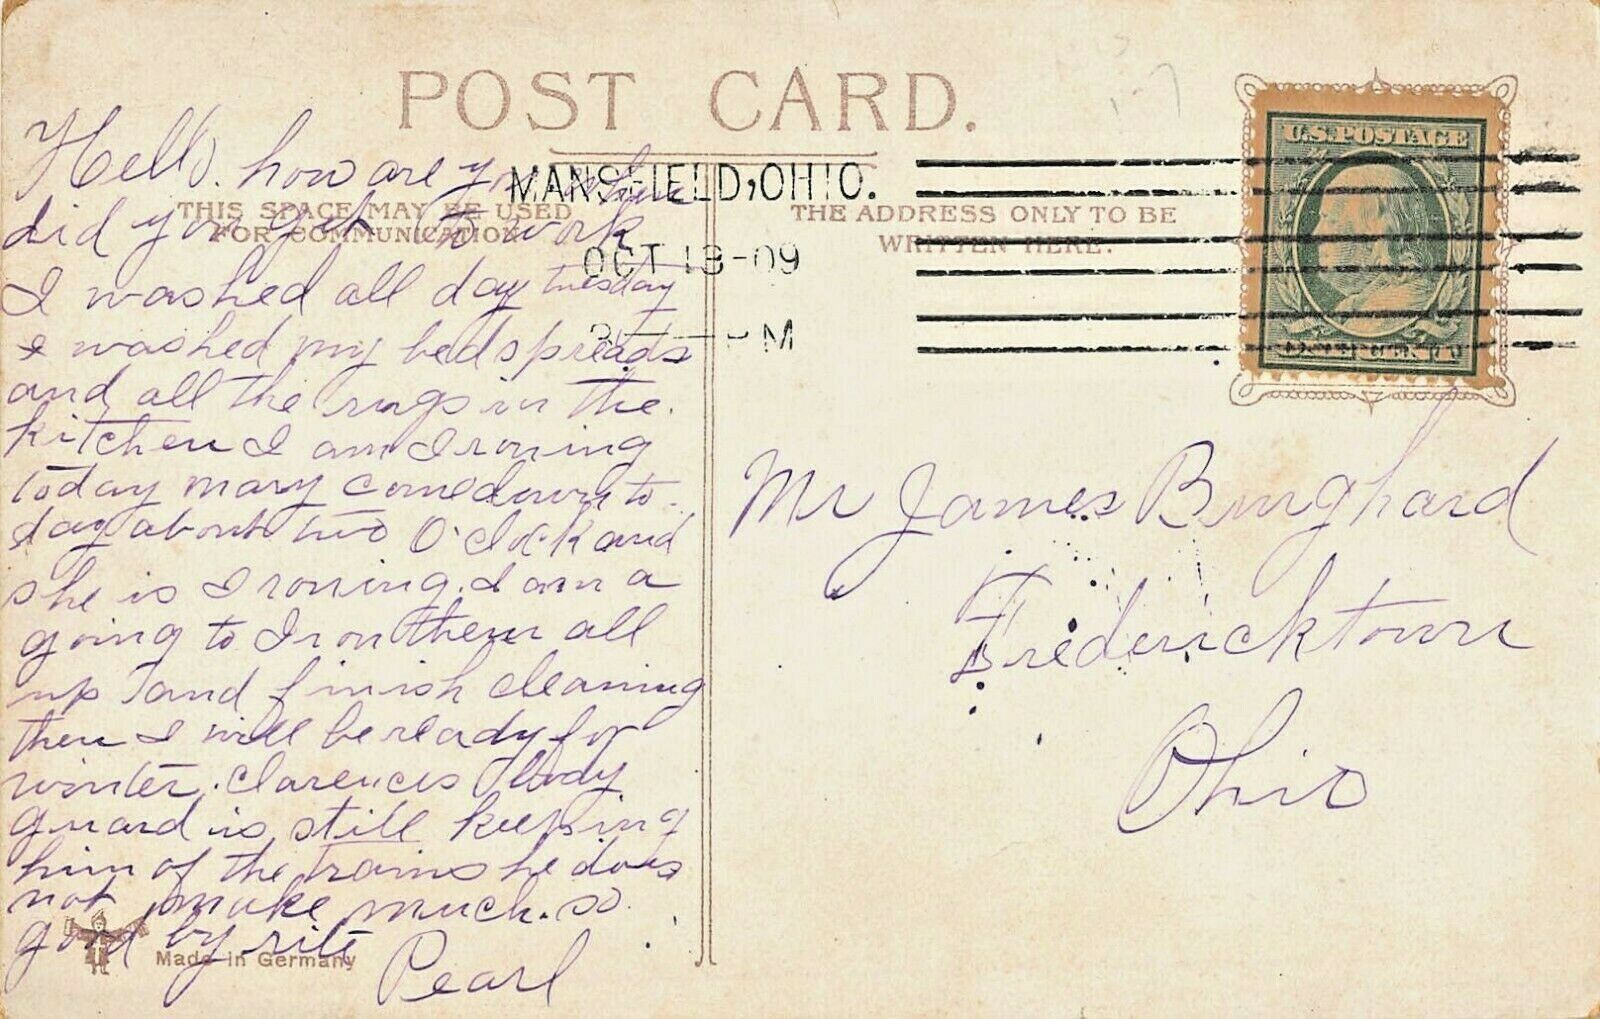 POST CARD.
THIS SPACE MAY BE USED
FOR COMMUNICATION
THE ADDRESS ONLY TO BE
WRITTEN HERE.
MANSFIELD, OHIO.
OCT 13-09
U.S. POSTAGE
Hello. how are you when
did you get to work
I washed all day tuesday
I washed my bedspreads
and all the rugs in the.
kitchen I am Ironing
today mary come down to
day about two O'clock and
she is Ironing. I am a
going to Iron them all
up and finish cleaning
then I will be ready for
winter. Clarences body
guard is still keeping
him of the trains he does
not make much. so
good by rite
Pearl
Made in Germany
Mr James Binghard
Fredericktown
Ohio